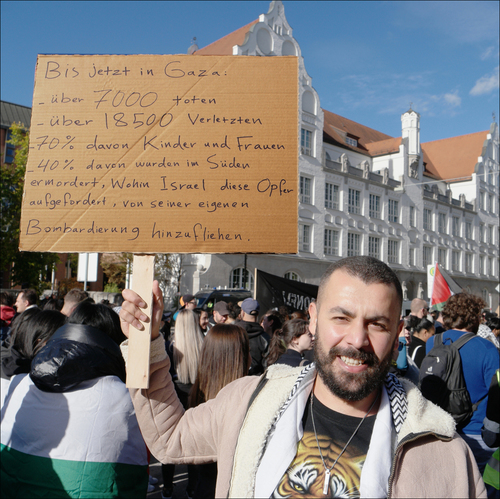 Bis jetzt in Gaza:
- über 7000 toten
- über 18500 Verletzten
- 70% davon Kinder und Frauen
- 40% davon wurden im Süden
ermordert, Wohin Israel diese Opfer
aufgefordert, von seiner eigenen
Bombardierung hinzufliehen.